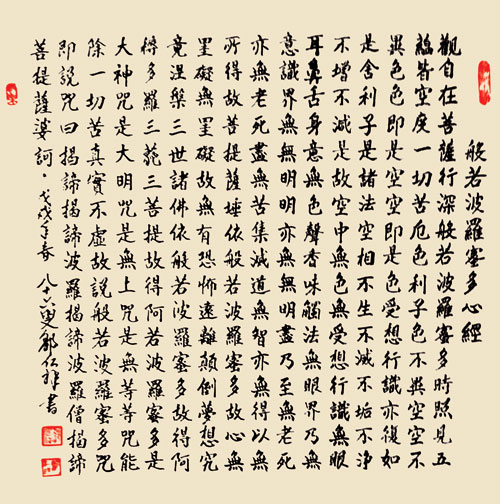 般若波羅蜜多心經
觀自在菩薩行深般若波羅蜜多時照見五
蘊皆空度一切苦厄舍利子色不異空空不
異色色即是空空即是色受想行識亦復如
是舍利子是諸法空相不生不滅不垢不淨
不增不減是故空中無色無受想行識無眼
耳鼻舌身意無色聲香味觸法無眼界乃無
意識界無無明亦無無明盡乃至無老死
亦無老死盡無苦集滅道無智亦無得以無
所得故菩提薩埵依般若波羅蜜多故心無
罣礙無罣礙故無有恐怖遠離顛倒夢想究
竟涅槃三世諸佛依般若波羅蜜多故得阿
耨多羅三藐三菩提故得阿若波羅蜜多是
大神咒是大明咒是無上咒是無等等咒能
除一切苦真實不虛故說般若波羅蜜多咒
即說咒曰揭諦揭諦波羅揭諦波羅僧揭諦
菩提薩婆訶 戊戌年春 八十六叟 仁祥書